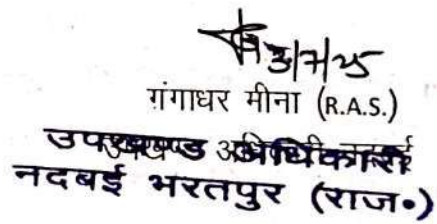 3/7/25
गंगाधर मीना (R.A.S.)
उपखण्ड अधिकारी
नदबई भरतपुर (राज॰)